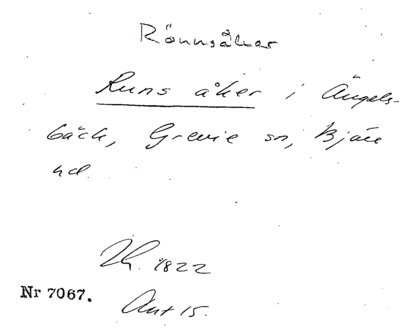 Rönnsåker
Runs åker i Ängels-
bäck, Grevie sn, Bjäre
hd.
Lh. 1822
Nr 7067.
Ant 15.